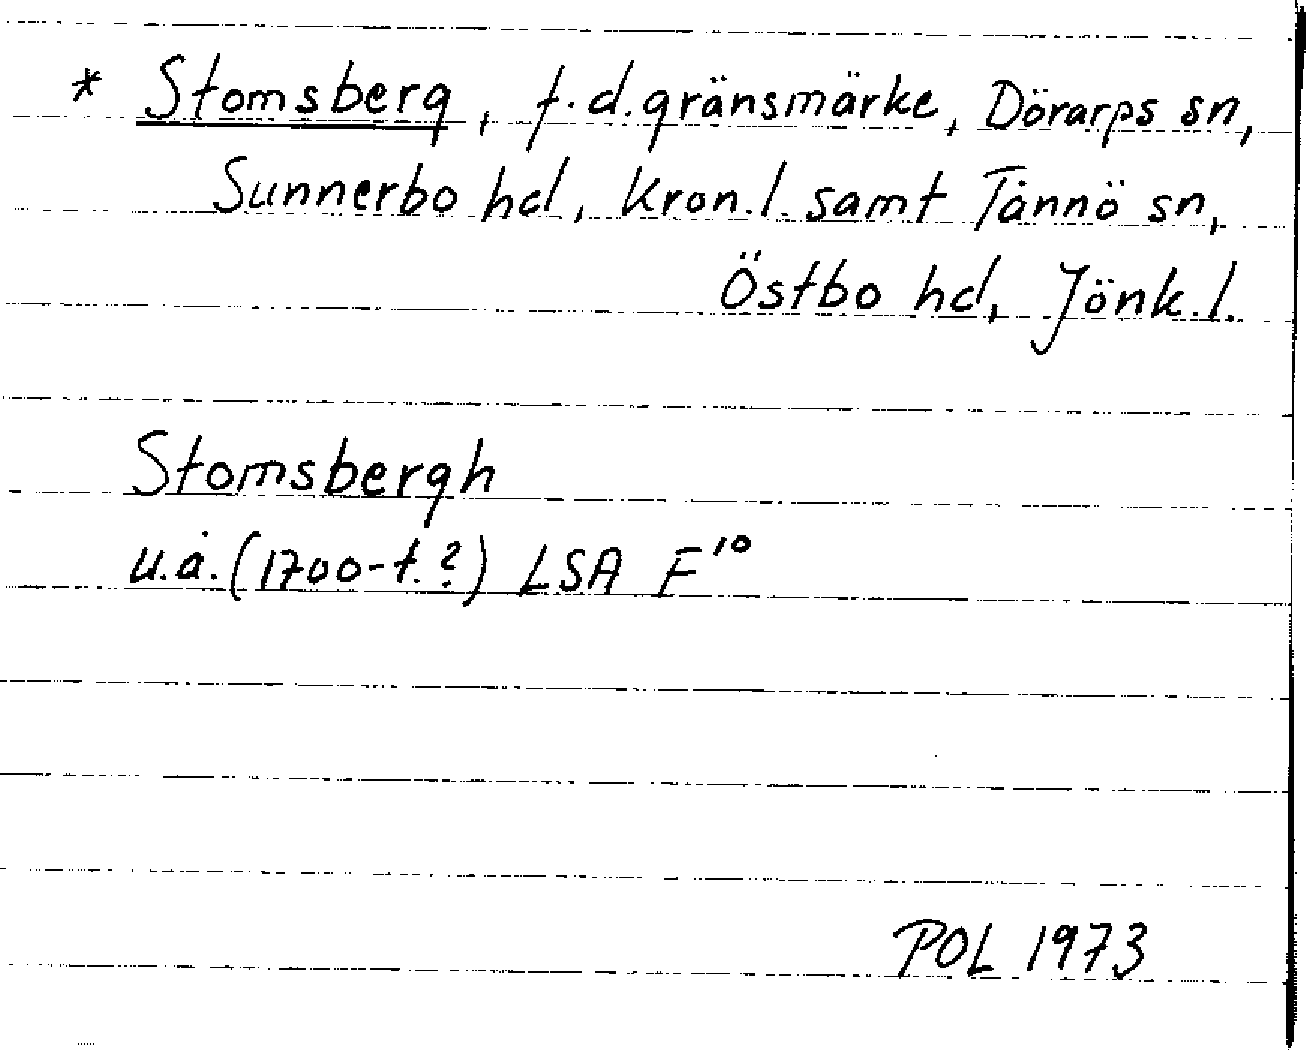 * Stomsberg, f.d. gränsmärke, Dörarps sn,
Sunnerbo hd, Kron.l. samt Tånnö sn,
Östbo hd, Jönk.l.
Stomsbergh
u.å. (1700-t.?) LSA F¹⁰
POL 1973